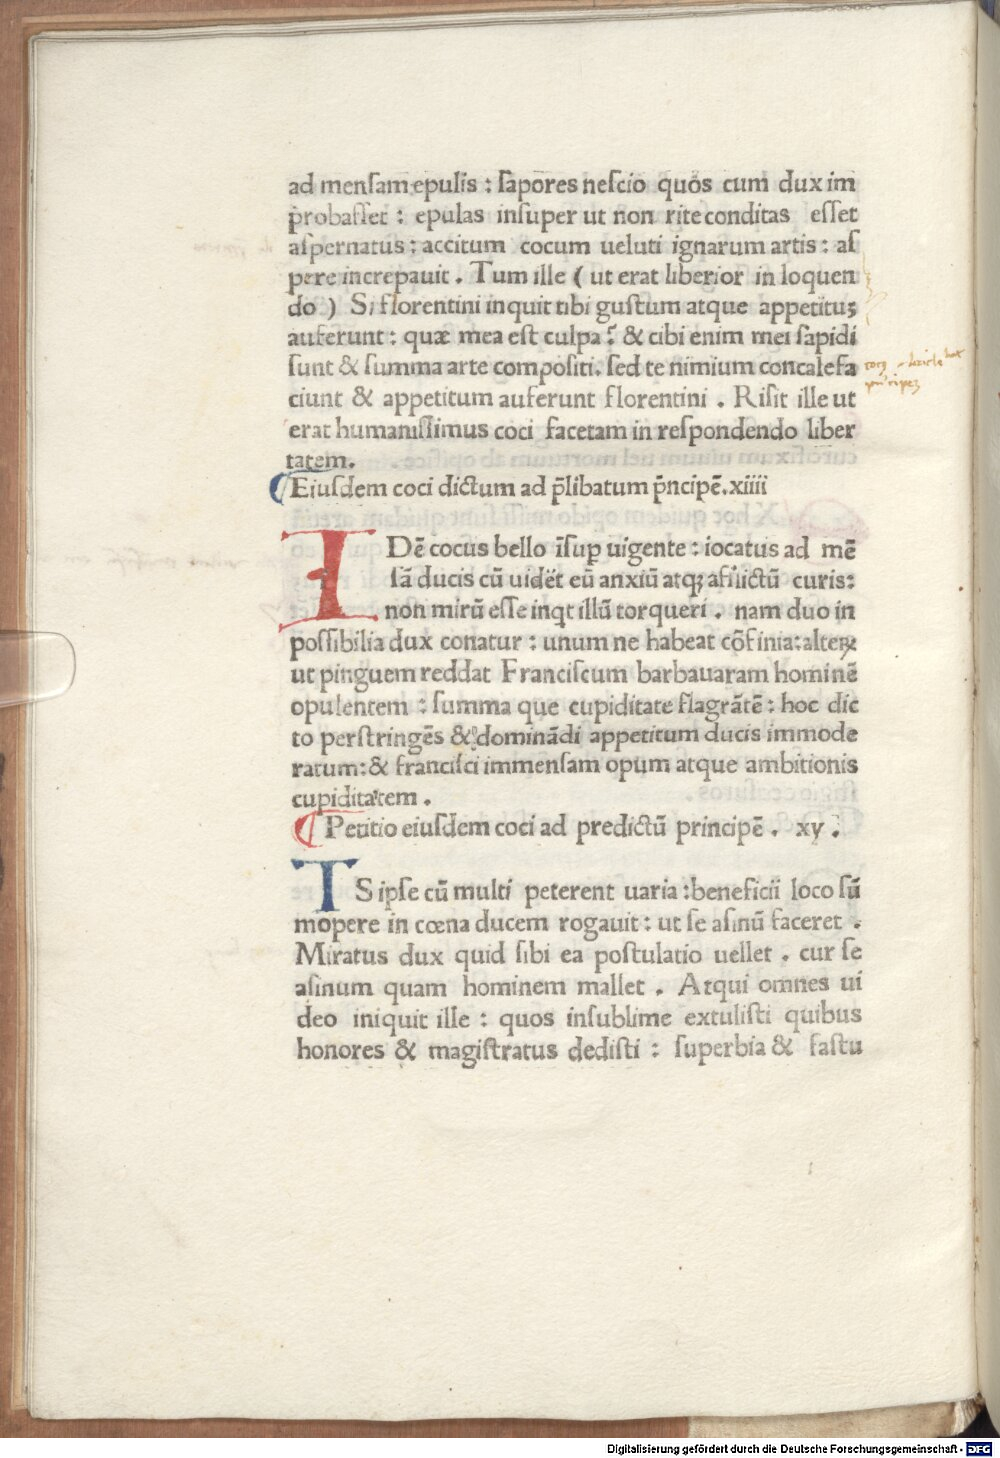 ad mensam epulis : sapores nescio quos cum dux im
probasset : epulas insuper ut non rite conditas esset
aspernatus : accitum cocum ueluti ignarum artis : as
pere increpauit . Tum ille ( ut erat liberior in loquen
do ) Si florentini inquit tibi gustum atque appetitu₉
auferunt : quæ mea est culpa ? & cibi enim mei sapidi
sunt & summa arte compositi . sed te nimium concalefa
ciunt & appetitum auferunt florentini . Risit ille ut
erat humanissimus coci facetam in respondendo liber
tatem .
Eiusdem coci dictum ad p̄libatum p̄ncipē . xiiii
IDē cocus bello īsuꝑ uigente : iocatus ad mē
sā ducis cū uidēt eū anxiū atqꝫ afflictū curis :
non mirū esse inqt illū torqueri . nam duo in
possibilia dux conatur : unum ne habeat cōfinia : alteꝝ
ut pinguem reddat Franciscum barbauaram hominē
opulentem : summa que cupiditate flagrātē : hoc dic
to perstringēs & dominādi appetitum ducis immode
ratum : & francisci immensam opum atque ambitionis
cupiditatem .
Petitio eiusdem coci ad predictū principē . xv .
IS ipse cū multi peterent uaria : beneficii loco sū
mopere in cœna ducem rogauit : ut se asinū faceret .
Miratus dux quid sibi ea postulatio uellet . cur se
asinum quam hominem mallet . Atqui omnes ui
deo iniquit ille : quos insublime extulisti quibus
honores & magistratus dedisti : superbia & fastu
Digitalisierung gefördert durch die Deutsche Forschungsgemeinschaft - DFG